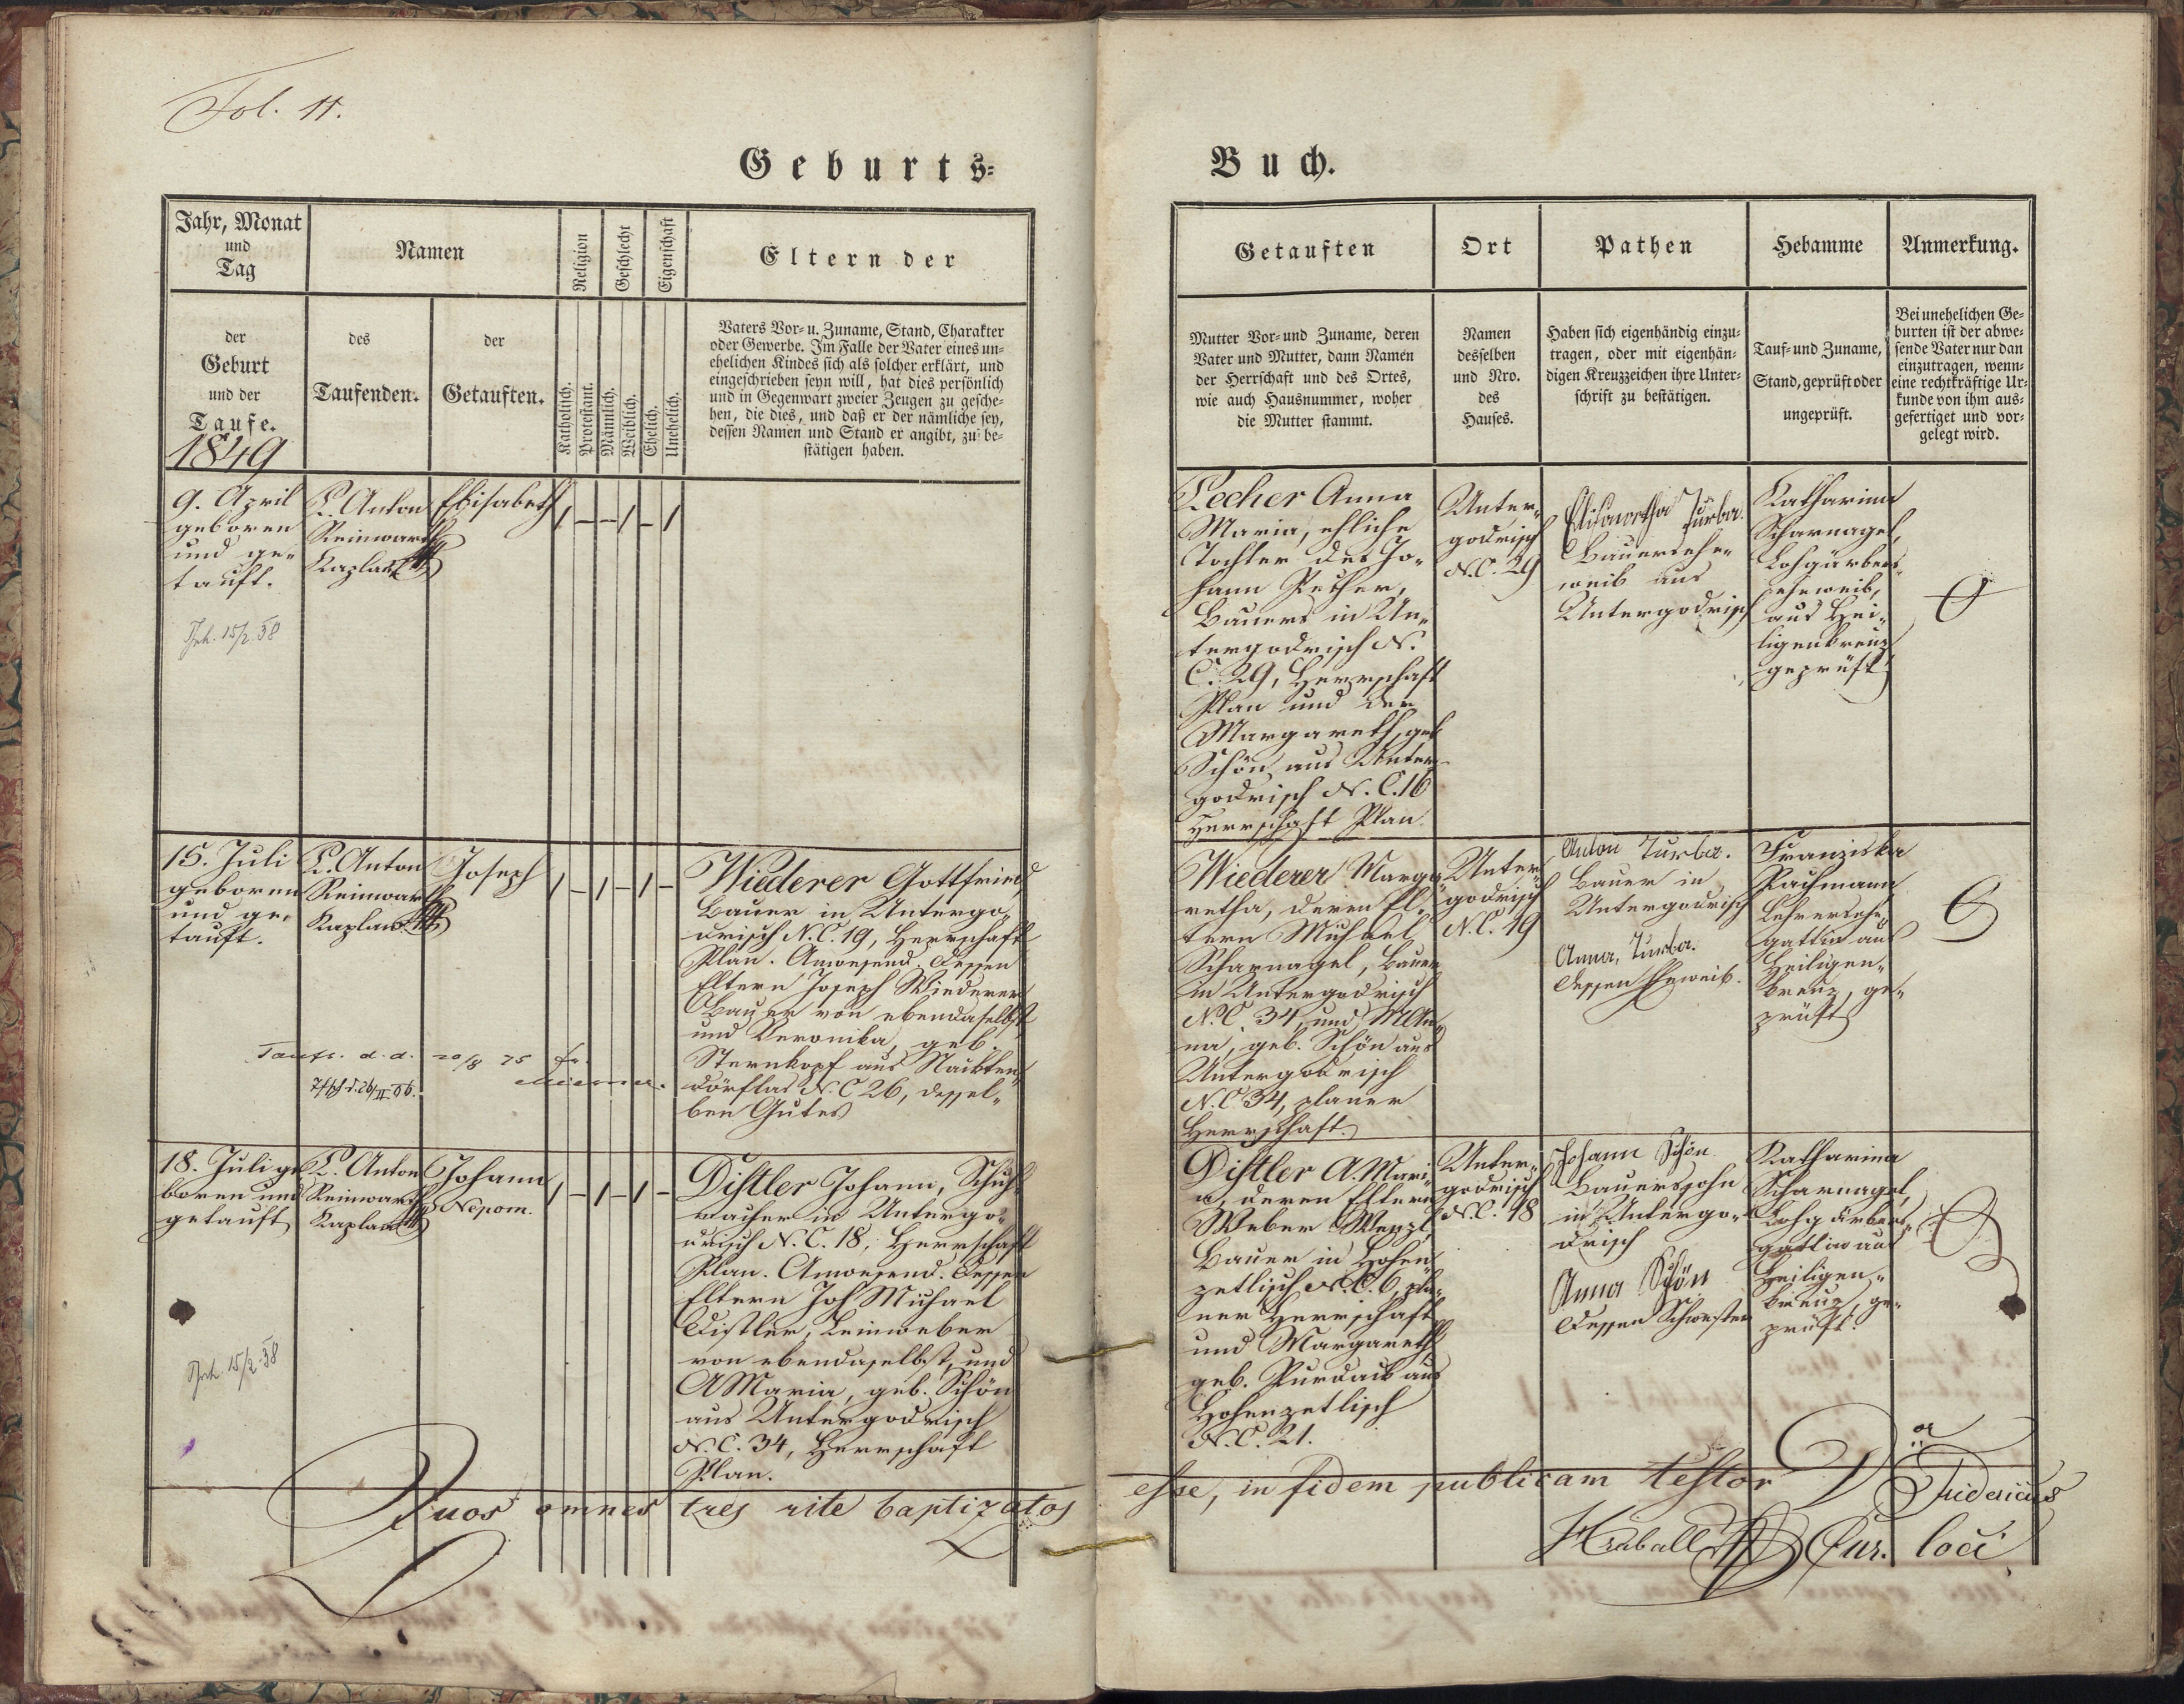 Fol. 11.
Geburts-
Buch.
Jahr, Monat
und
Tag
Namen
Religion
Geschlecht
Eigenschaft
Eltern der
der
Geburt
und der
Taufe.
1849
des
Taufenden.
der
Getauften.
Katholisch.
Protestant.
Männlich.
Weiblich.
Ehelich.
Unehelich.
Vaters Vor- u. Zuname, Stand, Charakter
oder Gewerbe. Im Falle der Vater eines un-
ehelichen Kindes sich als solcher erklärt, und
eingeschrieben seyn will, hat dies persönlich
und in Gegenwart zweier Zeugen zu gesche-
hen, die dies, und daß er der nämliche sey,
dessen Namen und Stand er angibt, zu be-
stätigen haben.
Getauften
Ort
Pathen
Hebamme
Anmerkung.
Mutter Vor- und Zuname, deren
Vater und Mutter, dann Namen
der Herrschaft und des Ortes,
wie auch Hausnummer, woher
die Mutter stammt.
Namen
desselben
und Nro.
des
Hauses.
Haben sich eigenhändig einzu-
tragen, oder mit eigenhän-
digen Kreuzzeichen ihre Unter-
schrift zu bestätigen.
Tauf- und Zuname,
Stand, geprüft oder
ungeprüft.
Bei unehelichen Ge-
burten ist der abwe-
sende Vater nur dan
einzutragen, wenn-
eine rechtkräftige Ur-
kunde von ihm aus-
gefertiget und vor-
gelegt wird.
9. April
geboren
und ge-
tauft.
P. Anton
Reinwarth
Kaplan
Elisabeth
1 – – 1 – 1
15/2.38
Lecher Anna
Maria, ehliche
Tochter des Jo-
hann Lecher,
Bauers in Un-
tergodrisch N.
C. 29, Herrschaft
Plan und der
Margareth, geb.
Schön aus Unter-
godrisch N. C. 16
Herrschaft Plan.
Unter-
godrisch
N. C. 29
Turba.
Bauersehe-
weib aus
Untergodrisch
Katharina
Scharnagel,
Lohgärbers-
eheweib,
aus Hei-
ligenkreuz
geprüft
15. Juli
geboren
und ge-
tauft.
P. Anton
Reinwarth
Kaplan
Joseph
1 – 1 – 1 –
Taufs. d. d. 20/8 75
Wiederer Gottfried
Bauer in Untergo-
drisch N. C. 19, Herrschaft
Plan. Anwesend. Dessen
Eltern Joseph Wiederer
Bauer von ebendaselbst
und Veronika, geb.
Sternkopf aus Nackten-
dörflas N. C 26, dessel-
ben Gutes
Wiederer Marga-
retha, deren El-
tern Michael
Scharnagel, Bauer
in Untergodrisch
N. C. 34, und M An-
na, geb. Schön aus
Untergodrisch
N. C. 34, planer
Herrschaft.
Unter-
godrisch
N. C. 19
Anton Turba.
Bauer in
Untergodrisch
Anna, Turba.
dessen Eheweib.
Franziska
Lehrersehe-
gattin aus
Heiligen-
kreuz, ge-
prüft
18. Juli ge-
boren und
getauft
P. Anton
Reinwarth
Kaplan
Johann
Nepom.
1 – 1 – 1 –
15/2.38
Distler Johann, Schuh-
macher in Untergo-
drisch N. C. 18, Herrschaft
Plan. Anwesend. Dessen
Eltern Joh Michael
Distler, Leinweber
von ebendaselbst, und
A Maria, geb. Schön
aus Untergodrisch
N. C. 34, Herrschaft
Plan.
Distler A. Mari-
a, deren Eltern
Weber Wenzl,
Bauer in Hohen-
zetlisch N. C. 6, pla-
ner Herrschaft
und Margareth
geb. Purdack aus
Hohenzetlisch
N. C. 21.
Unter-
godrisch
N. C. 18
Johann Schön
Bauerssohn
in Untergo-
drisch
Anna Schön
dessen Schwester
Katharina
Scharnagel,
Lohgärbers-
gattin aus
Heiligen-
kreuz, ge-
prüft.
Quos omnes tres rite baptizatos esse, in fidem publicam testor
Fridericus
Hraball Cur. loci